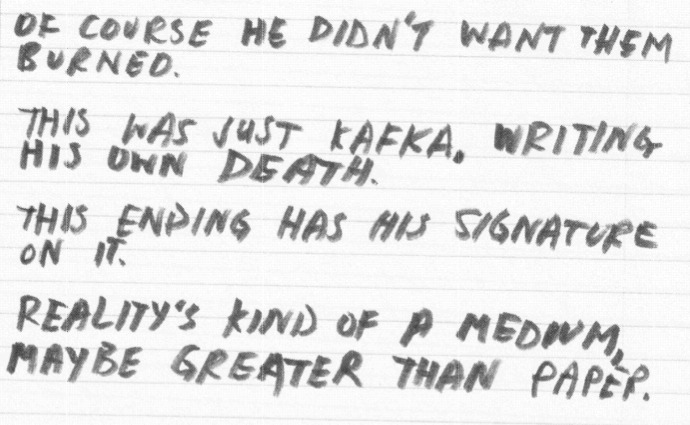 OF COURSE HE DIDN'T WANT THEM
BURNED.
THIS WAS JUST KAFKA, WRITING
HIS OWN DEATH.
THIS ENDING HAS HIS SIGNATURE
ON IT.
REALITY'S KIND OF A MEDIUM,
MAYBE GREATER THAN PAPER.